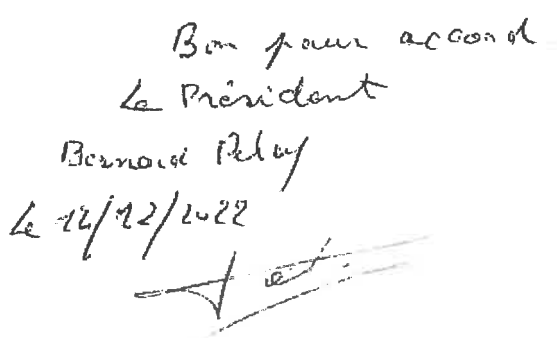 Bon pour accord
Le Président
Bernard
Le 12/12/2022